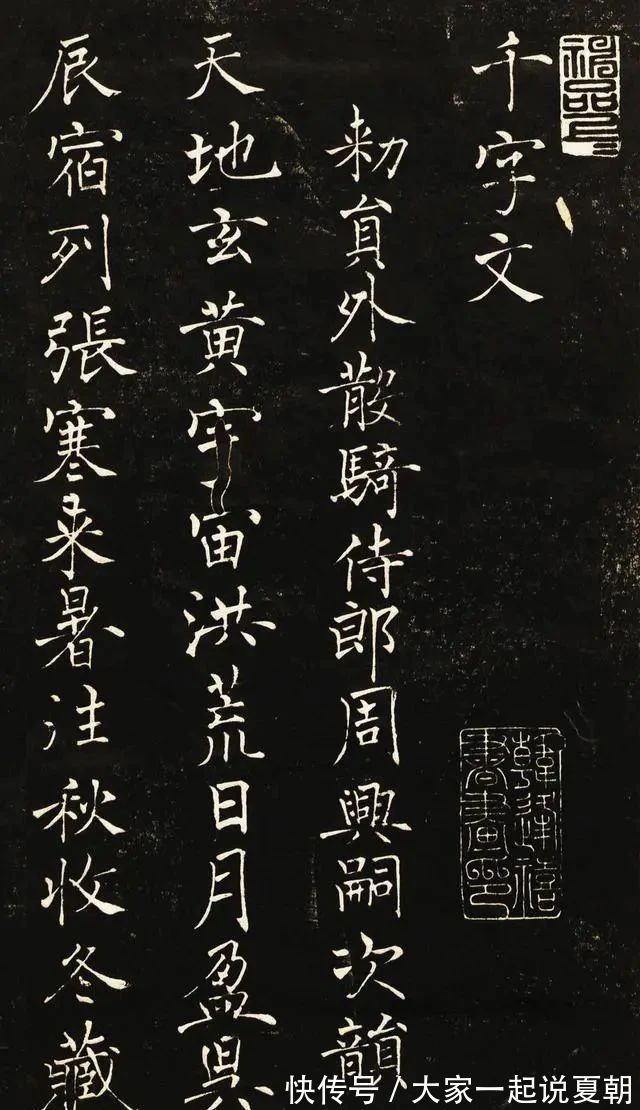 千字文
勑員外散騎侍郎周興嗣次韻
天地玄黄宇宙洪荒日月盈昃
辰宿列張寒来暑往秋收冬藏
韓逢禧
書畫印
快传号/大家一起说夏朝